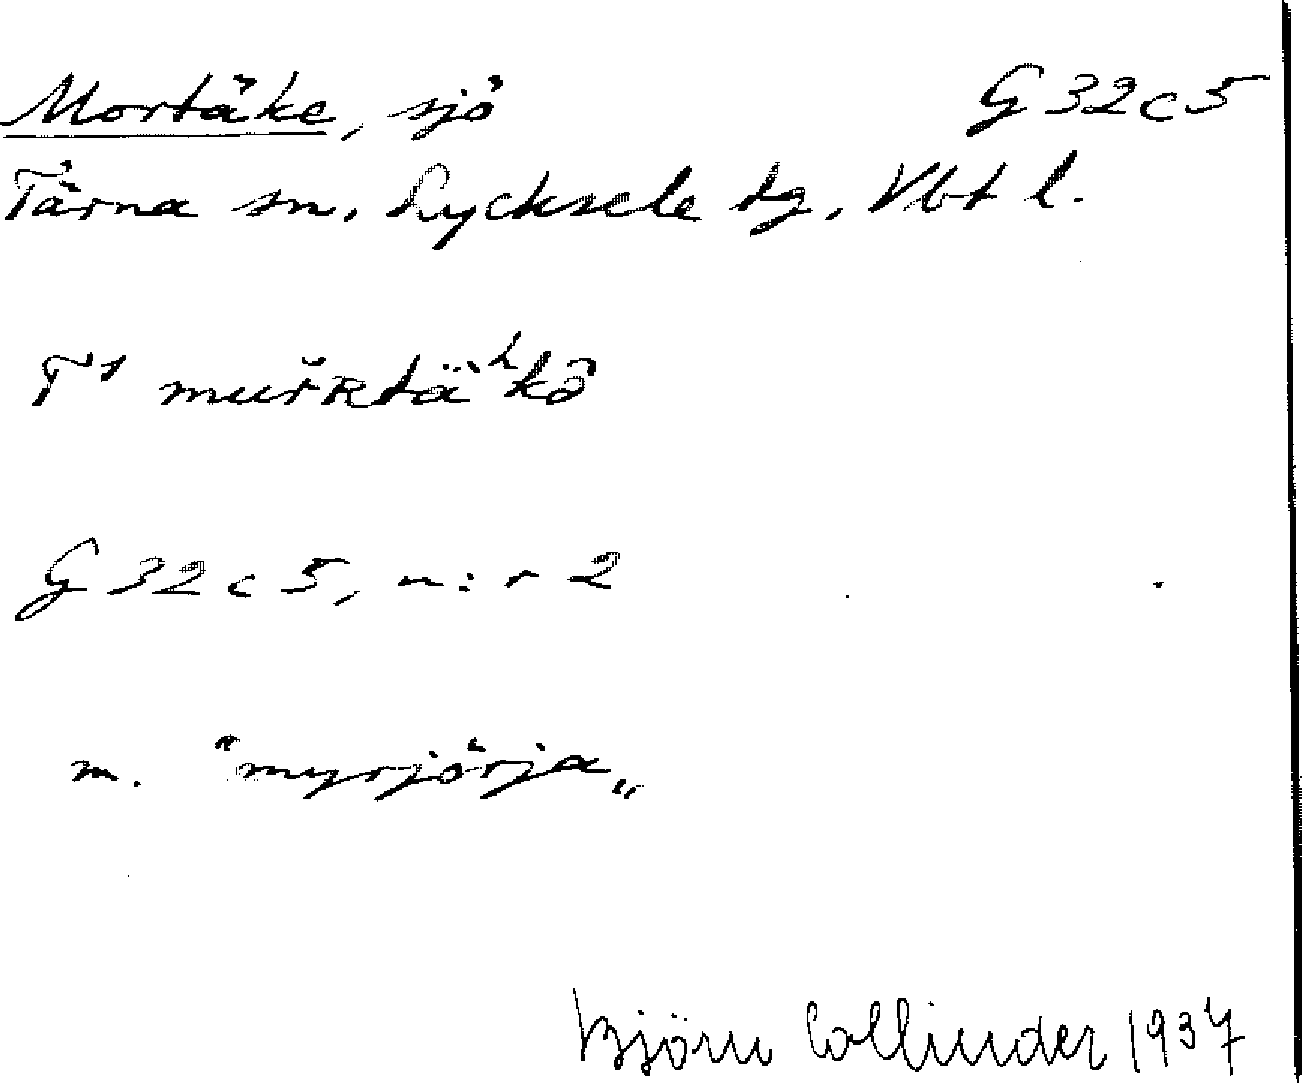 Mortäke, sjö G 32 c 5
Tärna sn. Lycksele tg. Vbt l.
T¹ muřʀtäʰkô
G 32 c 5, n:r 2
m. "myrjörja„
Björn Collinder 1937